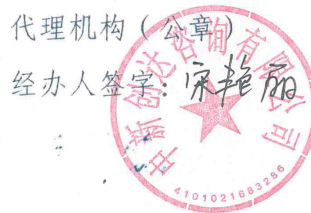 代理机构（公章）
经办人签字：宋艳丽
中新创达咨询有限公司
4101021683286